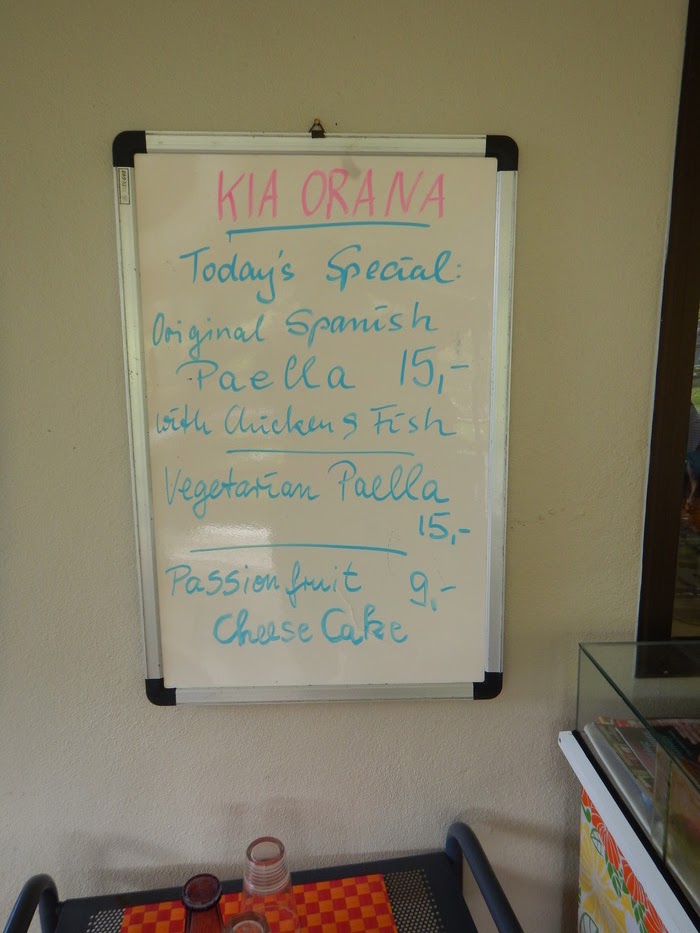 KIA ORANA
Today's Special:
Original Spanish
Paella 15,-
with Chicken & Fish
Vegetarian Paella
15,-
Passionfruit 9,-
Cheese Cake